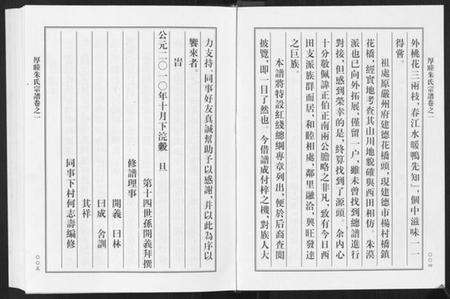 厚睦朱氏宗譜卷之一
外桃花三兩枝，春江水暖鴨先知」，個中滋味一一
得嘗。
祖處原嚴州府建德花橋頭，現建德市楊村橋鎮
花橋，經實地考查其山川地貌確與西田相仿。朱漠
派也已向外拓展，僅留一户，雖未曾找到總譜進行
對接，但感到榮幸的是，終算找到了源頭。余内心
十分敬佩諱正伯正南兩公膽略之非凡，致有今日西
田支派族群而居，和睦相處，鄰里融洽，興旺發達
之巨族。
本譜將特設紅綫總綱專章列出，便於后裔查閲
披覽，即一目了然也。今借譜成付梓之機，對族人大
〇〇四
力支持，同事好友真誠幫助予以感謝，并以此為序以
饗來者
旹
公元二〇一〇年十月下浣穀　旦
第十四世孫開義拜撰
修譜理事
開義　曰林
曰成　舍訓
其祥
同事下村何志壽編修
厚睦朱氏宗譜卷之一
〇〇五